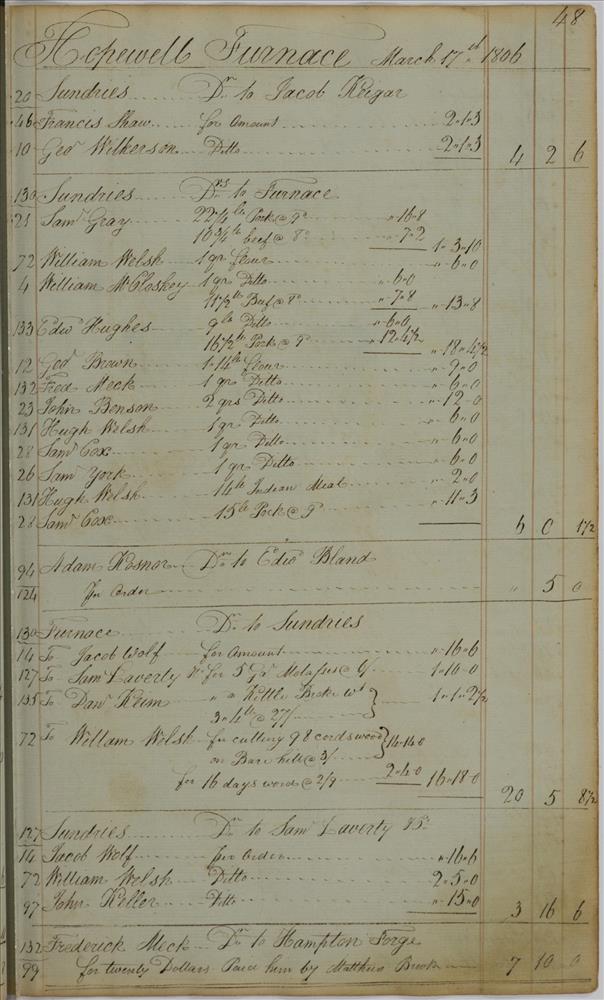 48
Hopewell Furnace March 17th 1806
20 Sundries Dr. to Jacob Kergar
46 Francis Shaw for Amount 2"1"3
10 Geo Wilkerson Ditto 2"1"3 4 2 6
130 Sundries Drs to Furnace
25 Saml Gray 22 1/4 lb Pork @ 9d "16"8
10 3/4 lb beef @ 8d "7"2 1"3"10
72 William Welsh 1 qr flour "6"0
4 William McCloskey 1 qr Ditto "6"0
11 1/2 lb Beef @ 8d "7"8 "13"8
133 Edwd Hughes 9 lb Ditto "6"0
16 1/2 lb Pork @ 9d "12"4 1/2 "18"4 1/2
12 Geo Brown 1"14 lb flour "9"0
132 Fred Meck 1 qr Ditto "6"0
23 John Benson 2 qrs Ditto "12"0
131 Hugh Welsh 1 qr Ditto "6"0
28 Saml Cox 1 qr Ditto "6"0
26 Saml York 1 qr Ditto "6"0
131 Hugh Welsh 14 lb Indian Meal "2"0
28 Saml Cox 15 lb Pork @ 9d "11"3
6 0 1 1/2
94 Adam Rosnor Dr. to Edwd Bland
124 Per Order " 5 0
130 Furnace Dr. to Sundries
14 To Jacob Wolf for Amount "16"6
127 To Saml Laverty for 5 Gal Molasses @ 6/ 1"10"0
135 To Danl Keim " a Kettle Broke wt
3"4 lb @ 27/ 1"1"2 1/2
72 To William Welsh for cutting 98 cords wood
on Bare hill @ 3/ 14"14"0
for 16 days work @ 2/9 2"4"0 16"18"0
20 5 8 1/2
127 Sundries Dr. to Saml Laverty
14 Jacob Wolf per Order "16"6
72 William Welsh Ditto 2"5"0
97 John Keller Ditto "15"0 3 16 6
132 Frederick Meck Dr. to Hampton Forge
99 for twenty Dollars Paid him by Matthew Brook 7 10 0